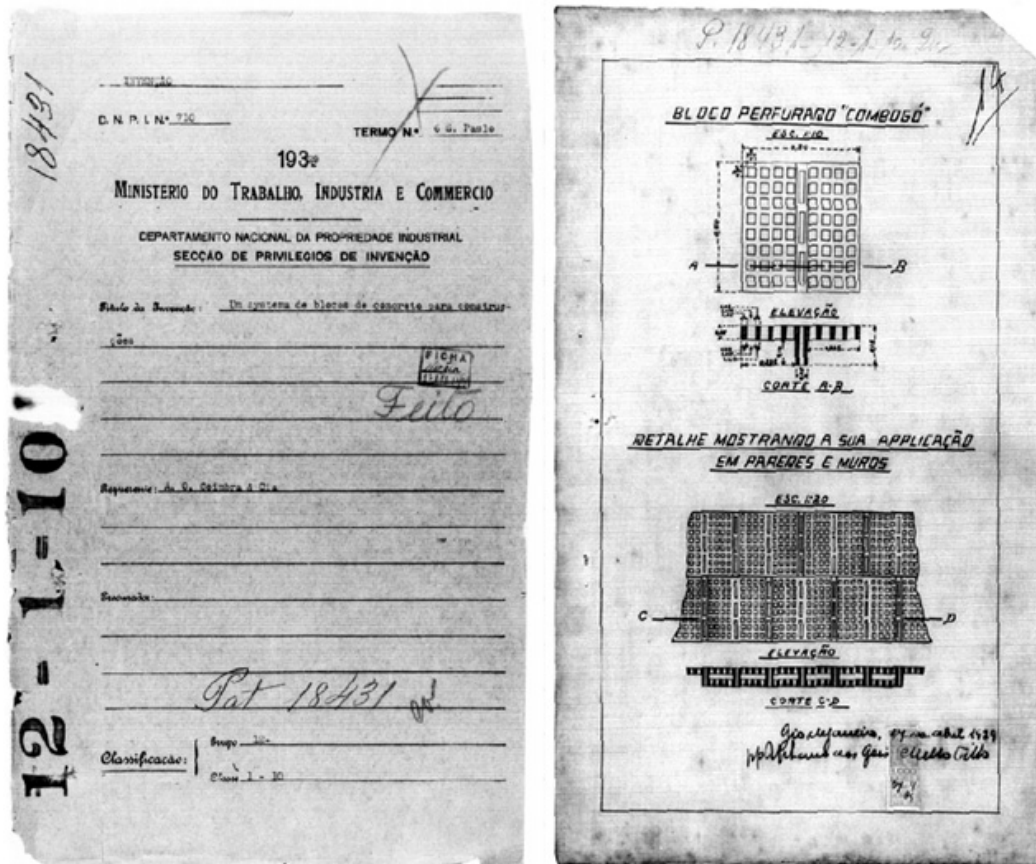 18431
INVENÇÃO
D. N. P. I. N.º 710
TERMO N.º 6 S. Paulo
193
MINISTERIO DO TRABALHO, INDUSTRIA E COMMERCIO
DEPARTAMENTO NACIONAL DA PROPRIEDADE INDUSTRIAL
SECCÃO DE PRIVILEGIOS DE INVENÇÃO
Titulo da Invenção: Um systema de blocos de concreto para construc-
ções
FICHA
Feito
Requerente: A. G. Coimbra & Cia
Procurador:
Pat 18431
Classificacão:
Grupo 12
Classe 1 - 10
12-1-10
P. 18431 - 12-1-10
BLOCO PERFURADO "COMBOGÓ"
ESC. 1:10
A B
ELEVAÇÃO
CORTE A-B
DETALHE MOSTRANDO A SUA APPLICAÇÃO
EM PAREDES E MUROS
ESC. 1:20
C D
ELEVAÇÃO
CORTE C-D
Rio de Janeiro, de abril 1929